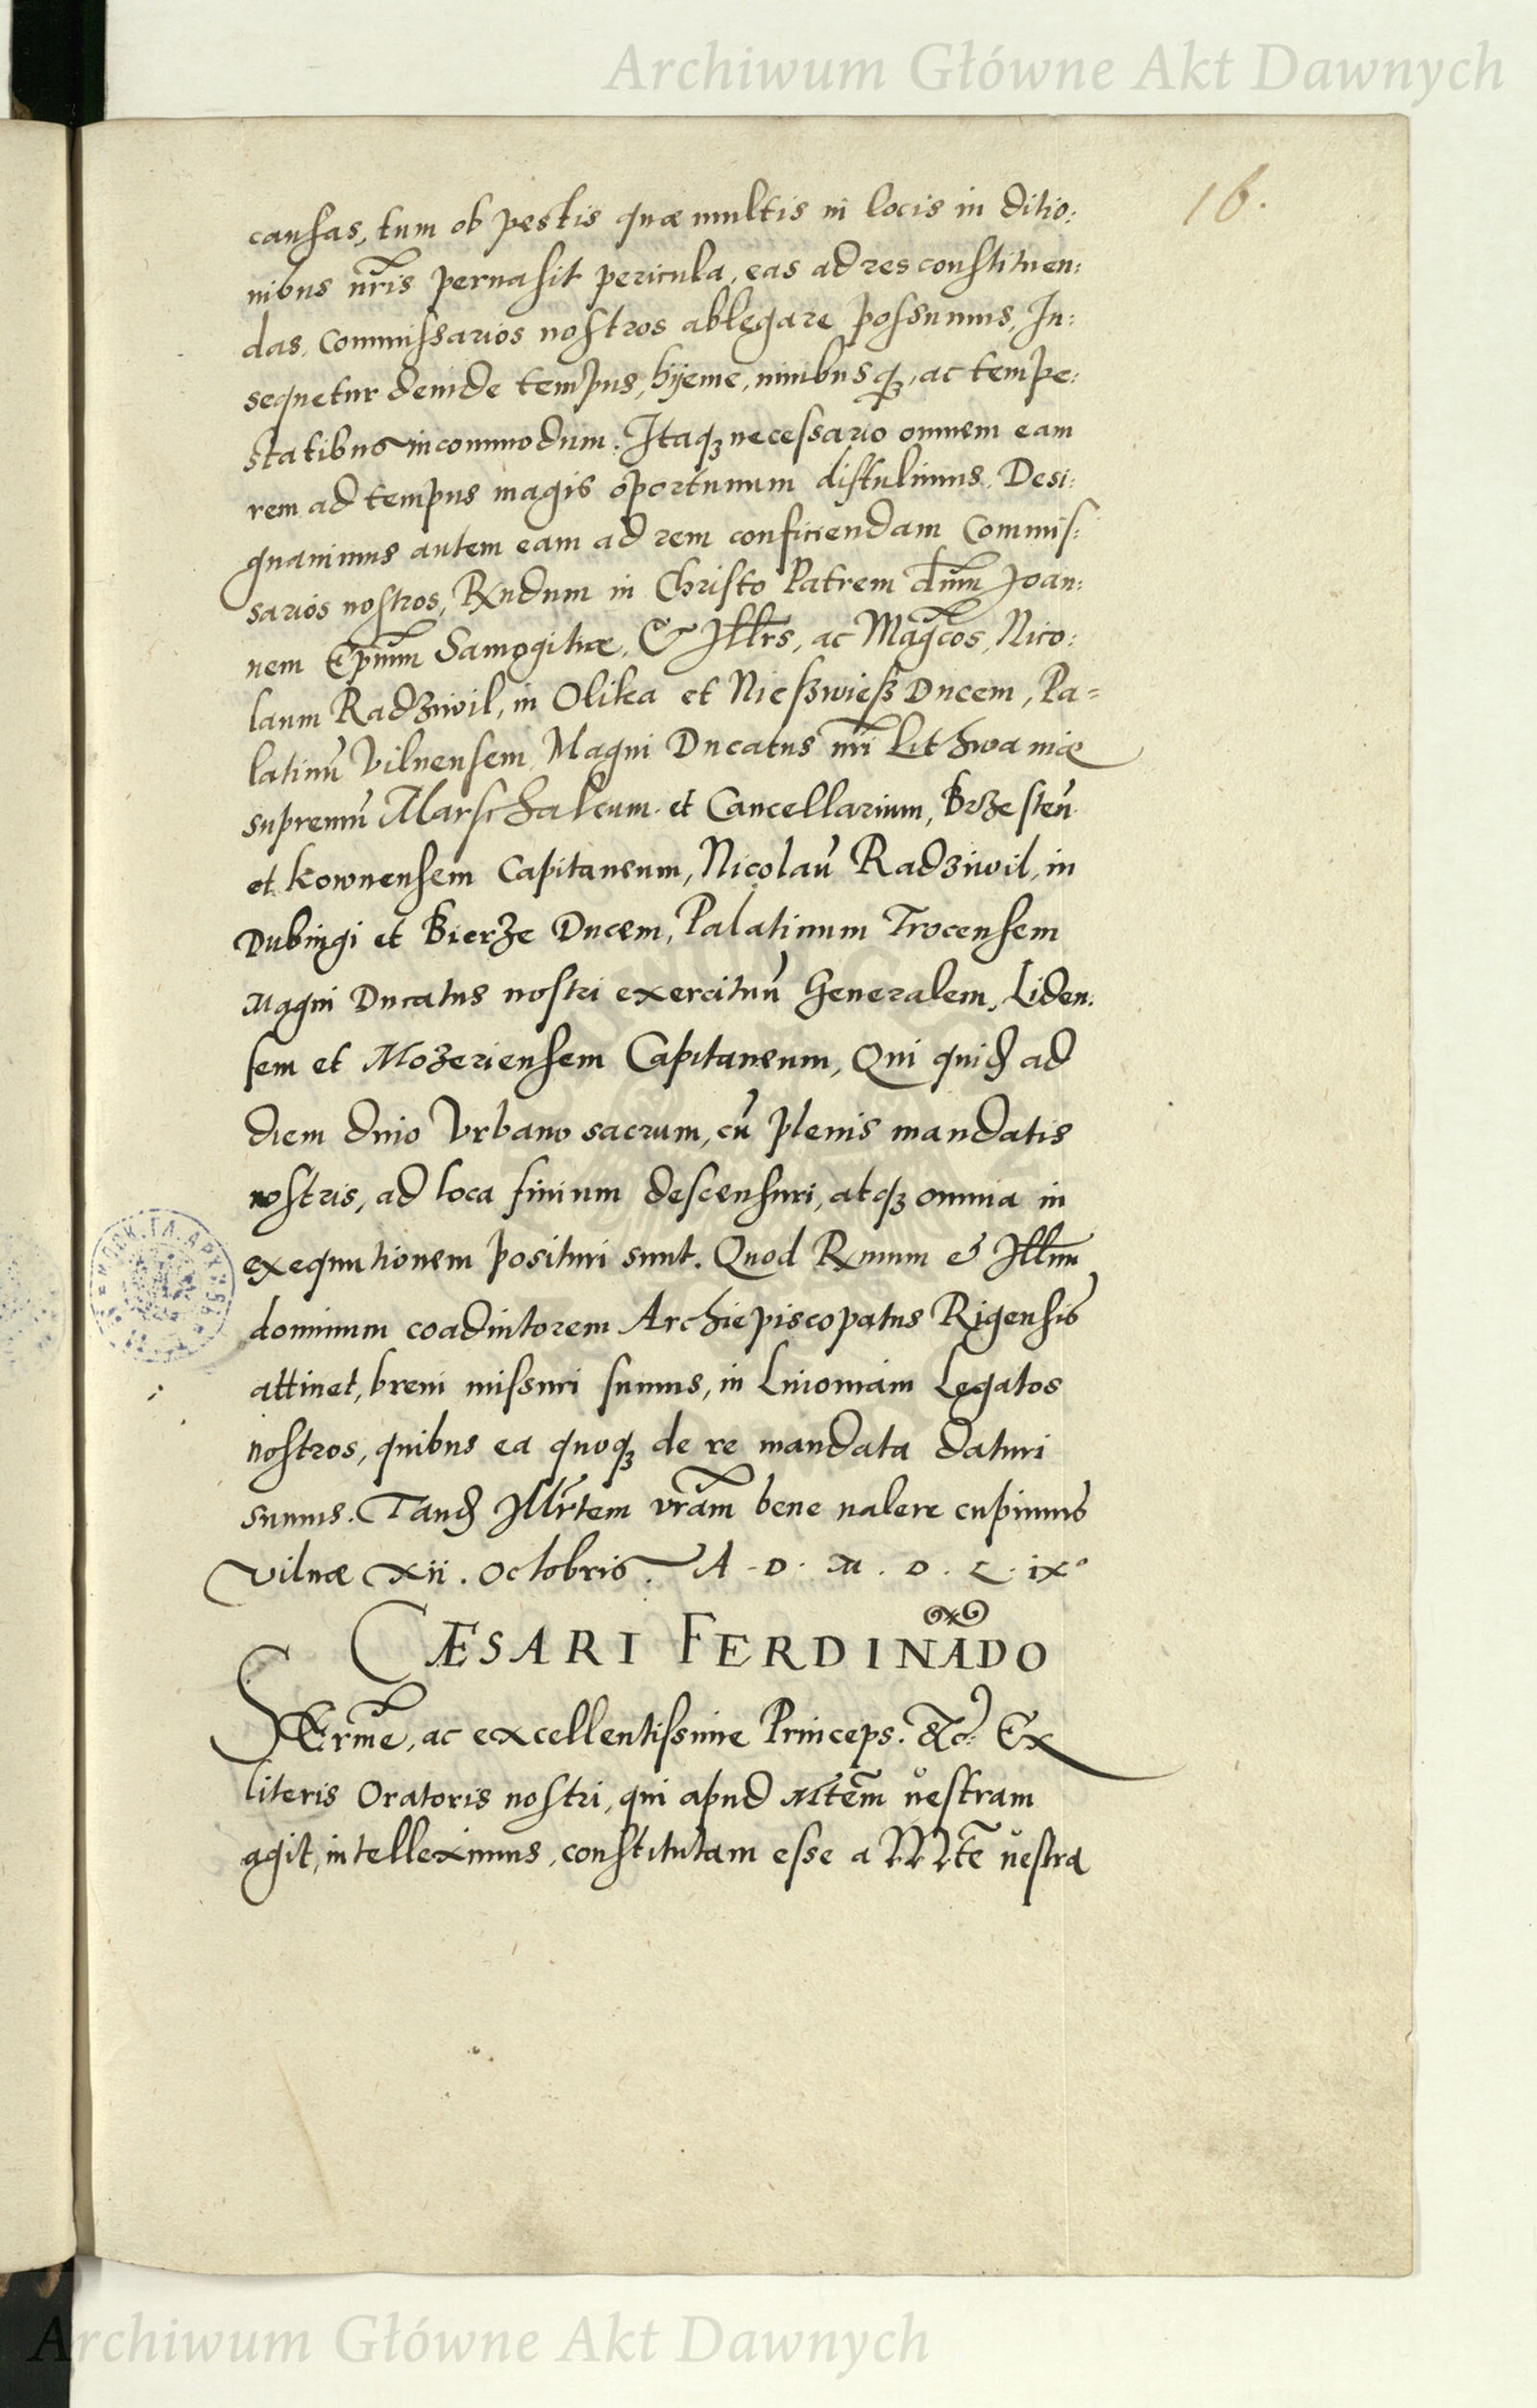 Archiwum Główne Akt Dawnych
16.
causas, tum ob pestis quæ multis in locis in ditio:
nibus nr̃is peruasit pericula, eas ad res constituen:
das, Commissarios nostros ablegare possumus, In:
sequetur deinde tempus, hyeme, nimbusq₃, ac tempe:
statibus incommodum. Itaq₃ necessario omnem eam
rem ad tempus magis oportunum distulimus. Desi:
gnauimus autem eam ad rem conficiendam Commis:
sarios nostros, Rndum in Christo Patrem dñm Joan:
nem Ep̃um Samogitiæ, & Jllr̃s, ac Mag̃cos, Nico:
laum Radziwil, in Olika et Nießwieß Ducem, Pa=
latinũ Vilnensem, Magni Ducatus nr̃i Lithwaniæ
supremũ Marschalcum et Cancellarium, Brzesteñ
et kownensem Capitaneum, Nicolaũ Radziwil, in
Dubingi et Bierze Ducem, Palatinum Trocensem
Magni Ducatus nostri exercituũ Generalem, Liden:
sem et Mozeriensem Capitaneum, Qui quid ad
diem diuo Vrbano sacrum, cũ plenis mandatis
nostris, ad loca finium descensuri, atq₃ omnia in
exequutionem posituri sunt. Quod Rmum & Jllm̃
dominum coadiutorem Archiepiscopatus Rigensis
attinet, breui missuri sumus, in Liuoniam Legatos
nostros, quibus ea quoq₃ de re mandata daturi
sumus. Tand Jllr̃tem vr̃am bene ualere cupimus
Vilnæ xii. Octobris. A. D. M. D. L. ix°
CÆSARI FERDINÃDO
SErm̃e, ac excellentissime Princeps. &c̃: Ex
literis Oratoris nostri, qui apud Mtẽm uestram
agit, intelleximus, constitutam esse a Mtẽ uestra
Archiwum Główne Akt Dawnych